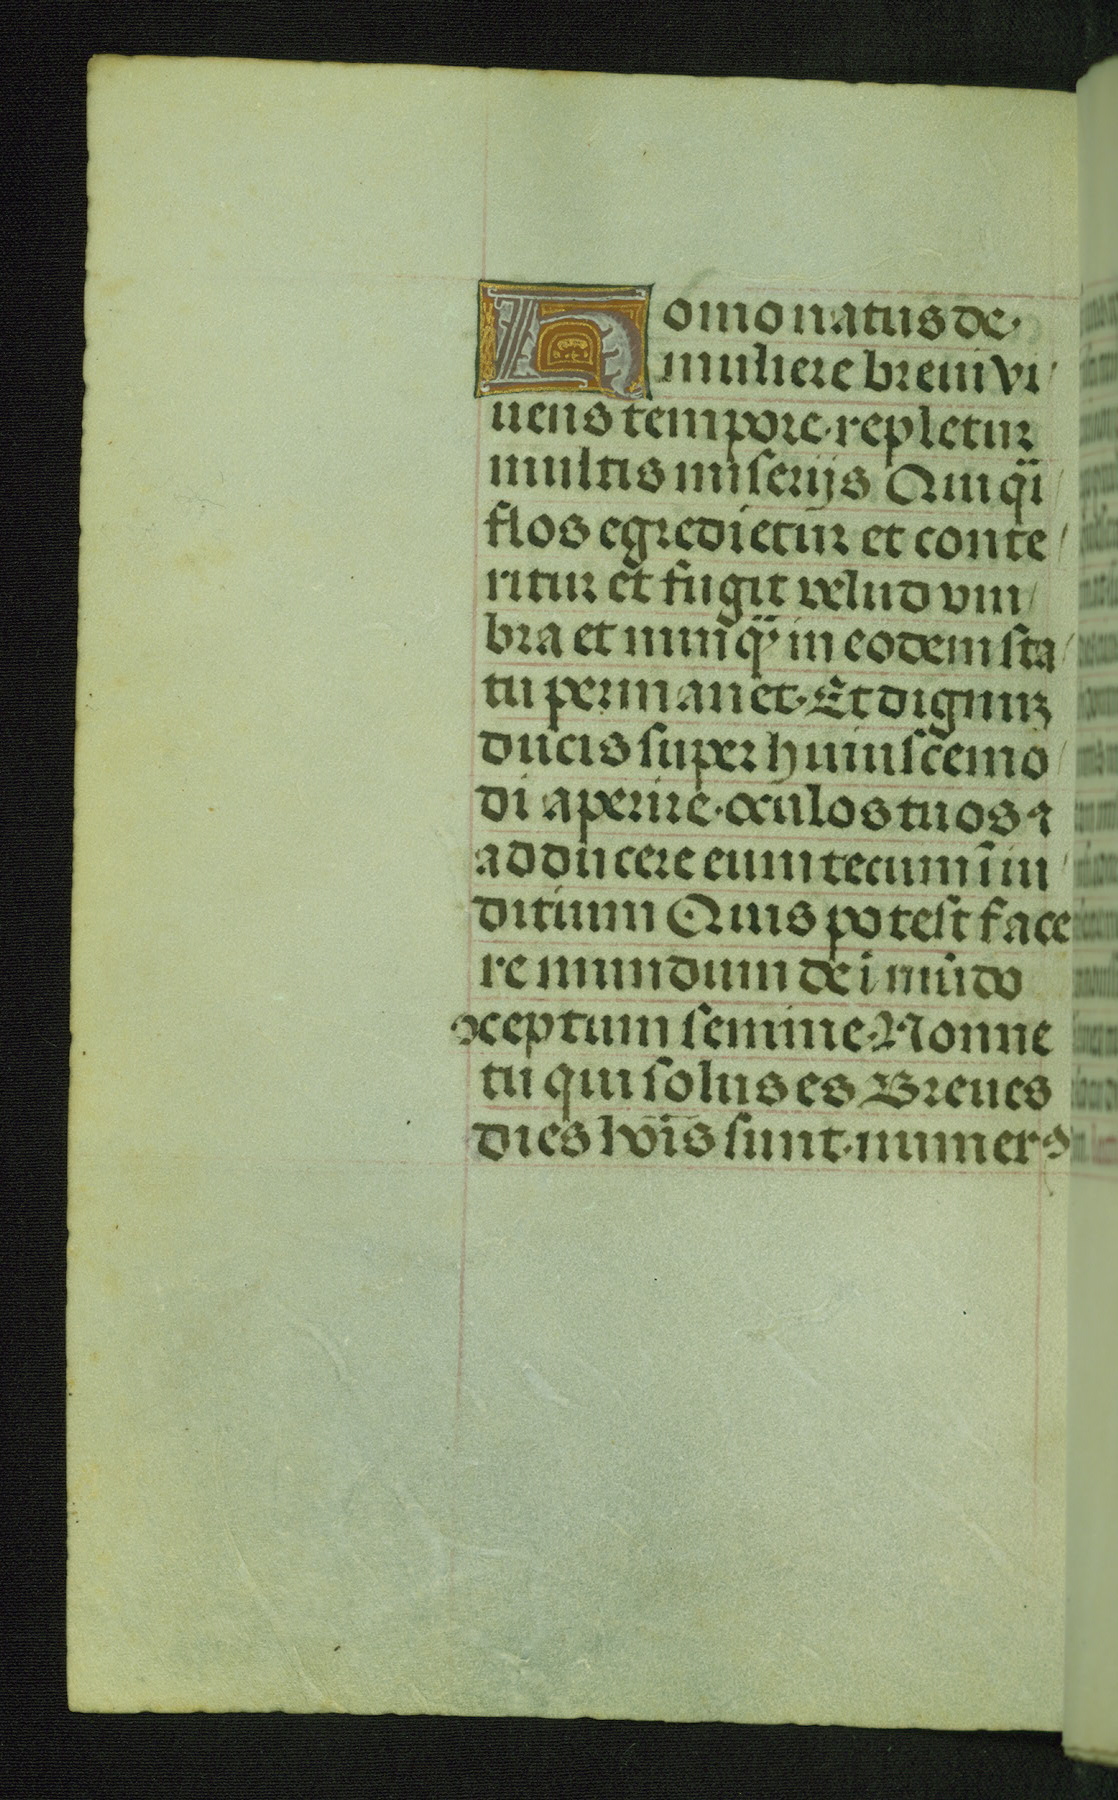 Homo natus de
muliere breui vi
uens tempore. repletur
multis miserijs Qui q̃i
flos egredietur et conte
ritur et fugit velud vm
bra et nunq̃ in eodem sta
tu permanet. Et dignuʒ
ducis super huiuscemo
di aperire. oculos tuos ⁊
adducere eum tecum ĩ iu
ditium Quis potest face
re mundum de imũdo
ↄceptum semine. Nonne
tu qui solus es Breues
dies hoĩs sunt. numerꝰ